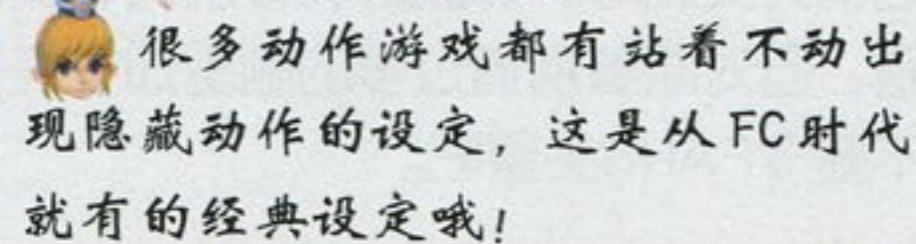 很多动作游戏都有站着不动出
现隐藏动作的设定，这是从FC时代
就有的经典设定哦！